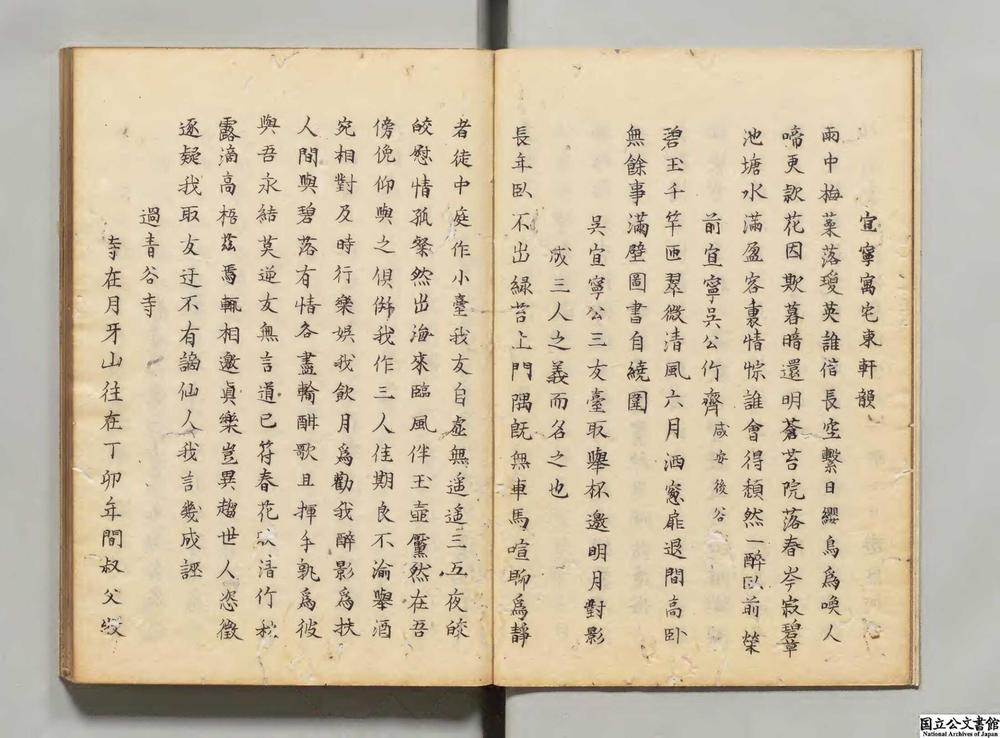 宜寧寓宅東軒韻
雨中梅蘂落瓊英誰信長空繫日纓鳥爲喚人
啼更欵花因欺暮暗還明蒼苔院落春岑寂碧草
池塘水滿盈客裏情悰誰會得頽然一醉臥前榮
前宜寧吳公竹齋咸安後谷
碧玉千竿匝翠微清風六月洒窓扉退閒高卧
無餘事滿壁圖書自繞圍
吳宜寧公三友臺取擧杯邀明月對影
成三人之義而名之也
長年臥不出綠苔上門隅旣無車馬喧聊爲靜
者徒中庭作小臺我友自虛無遥遥三五夜皎
皎慰情孤粲然出海來臨風伴玉壺黶然在吾
傍俛仰與之俱倂我作三人佳期良不渝擧酒
宛相對及時行樂娯我飮月爲勸我醉影爲扶
人間與碧落有情各盡輸酣歌且揮手孰爲彼
與吾永結莫逆友無言道已符春花清竹秋
露滴高梧玆焉輒相邀眞樂豈異趨世人恣徵
逐疑我取友迂不有謫仙人我言幾成誣
過青谷寺
寺在月牙山往在丁卯年間叔父
国立公文書館
National Archives of Japan